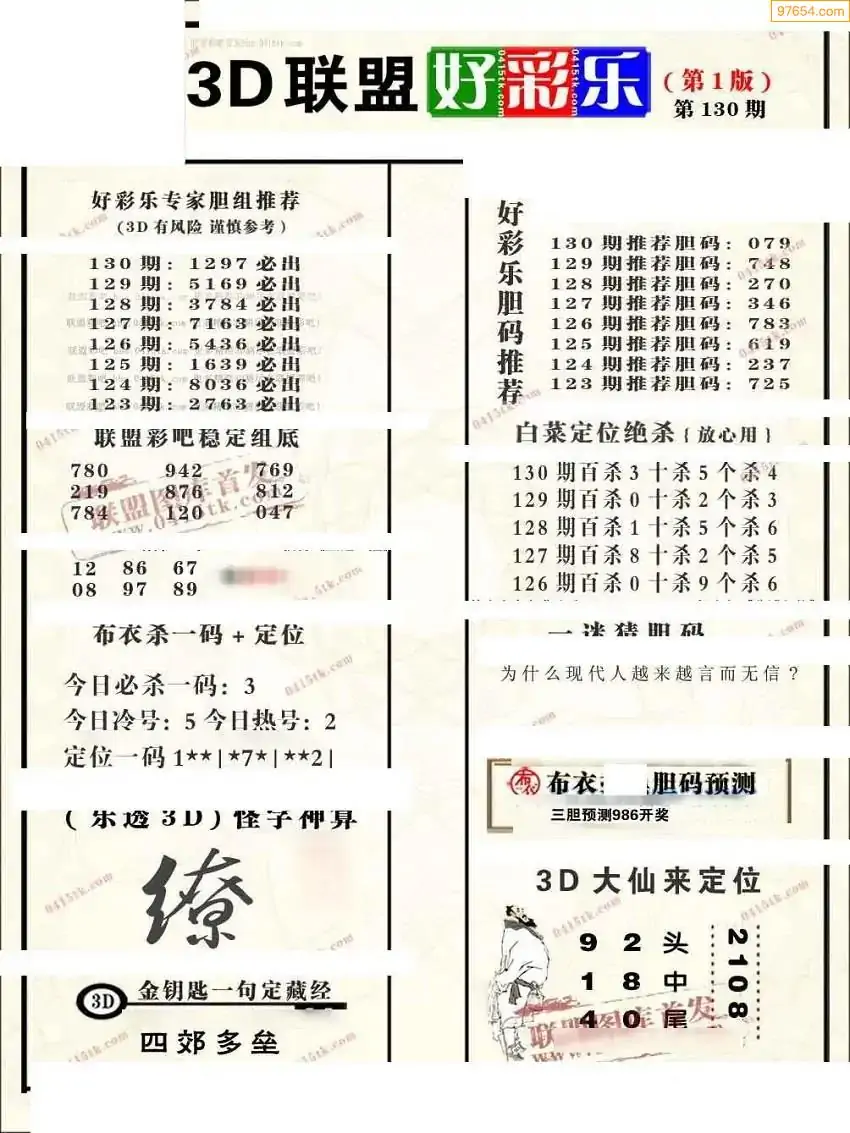 97654.com
3D联盟好彩乐
(第1版)
第130期
好彩乐专家胆组推荐
(3D有风险 谨慎参考)
130期：1297必出
129期：5169必出
128期：3784必出
127期：7163必出
126期：5436必出
125期：1639必出
124期：8036必出
123期：2763必出
联盟彩吧稳定组底
780 942 769
219 876 812
784 120 047
联盟图库首发
www.0415tk.com
12 86 67
08 97 89
布衣杀一码+定位
今日必杀一码：3
今日冷号：5 今日热号：2
定位一码1**|*7*|**2|
(乐透3D)怪字神算
缭
3D 金钥匙一句定藏经
四郊多垒
好彩乐胆码推荐
130期推荐胆码：079
129期推荐胆码：748
128期推荐胆码：270
127期推荐胆码：346
126期推荐胆码：783
125期推荐胆码：619
124期推荐胆码：237
123期推荐胆码：725
白菜定位绝杀{放心用}
130期百杀3十杀5个杀4
129期百杀0十杀2个杀3
128期百杀1十杀5个杀6
127期百杀8十杀2个杀5
126期百杀0十杀9个杀6
一迷猜胆码
为什么现代人越来越言而无信？
布衣 胆码预测
三胆预测986开奖
3D大仙来定位
9 2 头
1 8 中
4 0 尾
2108
联盟图库首发
0415tk.com